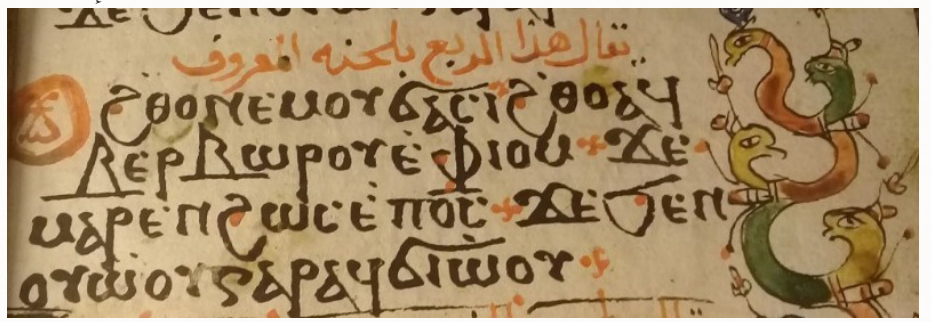 يقال هذا الربع بلحنه المعروف
ϩ̀ⲑⲟⲛⲉⲙⲟⲩϭⲁⲥⲓϩ̀ⲑⲟⲁϥ
ⲃⲉⲣⲃⲱⲣⲟⲩⲉ̀ⲫⲓⲟⲙ ϫⲉ
ⲙⲁⲣⲉⲛϩⲱⲥⲉ̀ⲡⲟ̅ⲥ̅ ϫⲉϧⲉⲛ
ⲟⲩⲱ̀ⲟⲩⲅⲁⲣⲁϥϭⲓⲱ̀ⲟⲩ